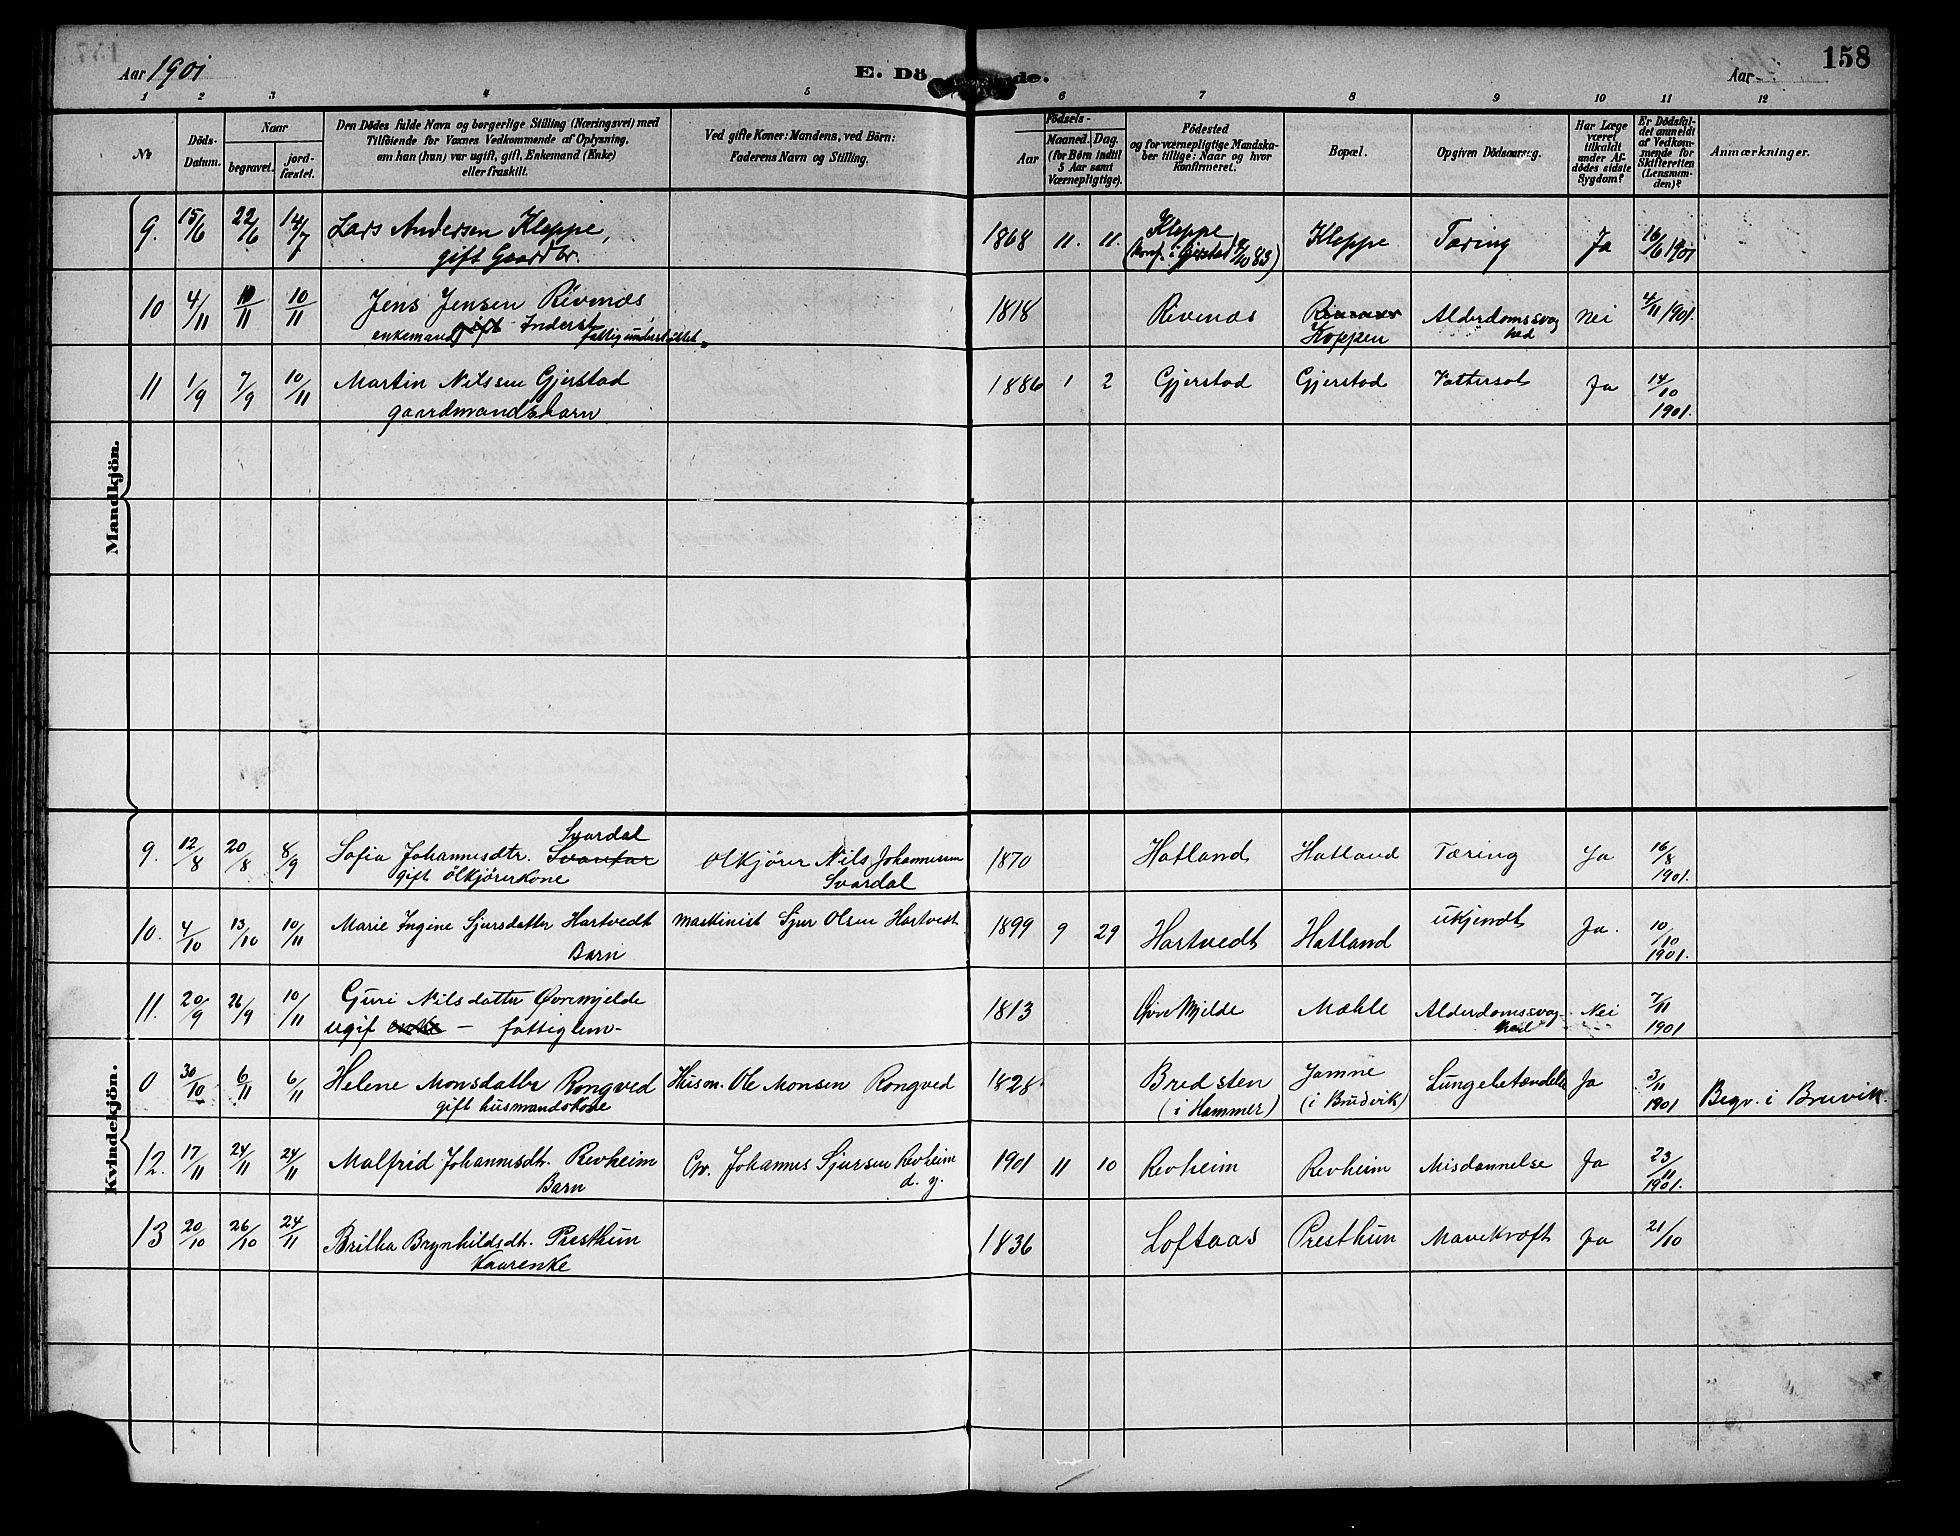 Aar 1901
E. Dö de.
Aar
158
1 2 3 4 5 6 7 8 9 10 11 12
No
Döds-Datum.
Naar
begravet. jord-fæstet.
Den Dödes fulde Navn og borgerlige Stilling (Næringsvei) med
Tilföiende for Voxnes Vedkommende af Oplysning,
om han (hun) var ugift, gift, Enkemand (Enke)
eller fraskilt.
Ved gifte Koner: Mandens, ved Börn:
Faderens Navn og Stilling.
Födsels-
Aar Maaned. Dag.
(for Börn indtil
5 Aar samt
Værnepligtige).
Födested
og for værnepligtige Mandska-
ber tillige: Naar og hvor
konfirmeret.
Bopæl.
Opgiven Dödsaarsag.
Har Læge
været
tilkaldt
under Af-
dödes sidste
Sygdom?
Er Dödsfal-
det anmeldt
af Vedkom-
mende for
Skifteretten
(Lensman-
den)?
Anmærkninger.
Mandkjön.
9. 15/6 22/6 14/7 Lars Andersen Kleppe, 1868 11. 11. Kleppe Kleppe Tæring Ja 16/6 1901
gift Gaardbr. (konf. i Gjerstad 83)
10 4/11 10/11 10/11 Jens Jensen Rivenæs 1818 Rivenæs Rivenæs Alderdomssvag Nei 4/11 1901
enkemand gift Inderst fattigunderstöttet. Koppen hed
11 1/9 7/9 10/11 Martin Nilsen Gjerstad 1886 1 2 Gjerstad Gjerstad Vattersot Ja 14/10
gaardmandsbarn 1901.
Kvindekjön.
Svardal
9. 12/8 20/8 8/9 Sofia Johannesdtr. Ølkjörer Nils Johannesen 1870 Hatland Hatland Tæring Ja 16/8
gift ölkjörerkone Svardal 1901.
10. 4/10 13/10 10/11 Marie Ingine Sjursdatter Hartvedt Maskinist Sjur Olsen Hartvedt 1899 9 29 Hartvedt Hatland ukjendt Ja. 10/10
Barn 1901.
11. 20/9 26/9 10/11 Guri Nilsdatter Øvremjelde 1813 Øvre Mjelde Mæhle Alderdomssvag- Nei 7/11
ugif enke - fattiglem- hed 1901
0 30/10 6/11 6/11 Helene Monsdatter Rongved Husm. Ole Monsen Rongved 1828 Bredsten Jamne Lungebetændelse Ja 3/11
gift husmandskone (i Hammer) (i Brudvik) 1901 Begr. i Bruvik.
12. 17/11 24/11 24/11 Malfrid Johannesdt. Revheim Gr. Johannes Sjursen Revheim 1901 11 10 Revheim Revheim Misdannelse Ja 23/11
Barn d. y. 1901.
13 20/10 26/10 24/11 Britha Brynhildsdt. Presthun 1836 Loftaas Presthun Mavekræft Ja 21/10
Kaarenke